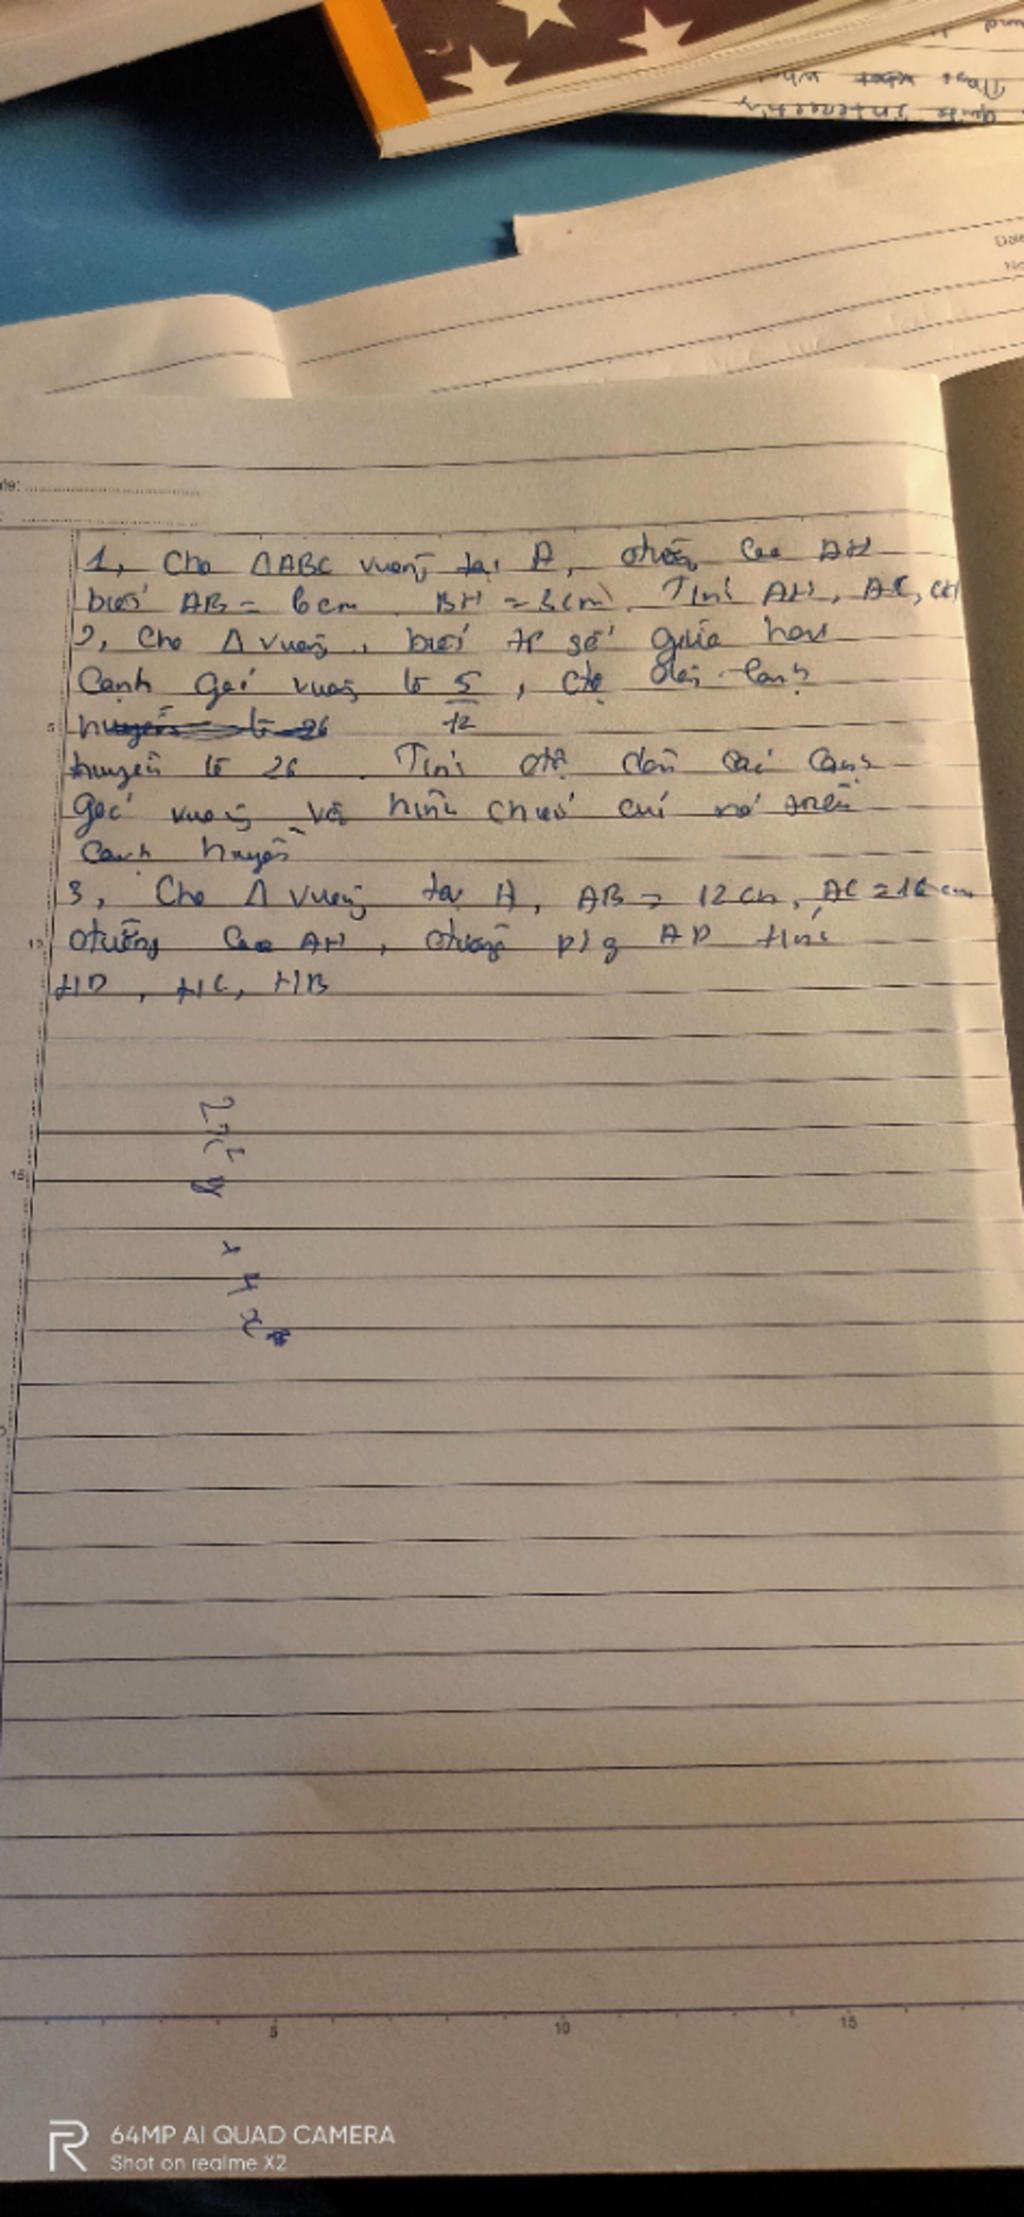 Date
No
ate:
1, Cho ΔABC vuông tại A, đường cao AH
biết AB = 6cm. BH = 3cm. Tính AH, AC, CH
2, Cho Δ vuông, biết tỉ số giữa hai
cạnh góc vuông là 5/12, độ dài cạnh
huyền là 26
huyền là 26. Tính độ dài các cạnh
góc vuông và hình chiếu của nó trên
cạnh huyền
3, Cho Δ vuông tại A, AB = 12cm, AC = 16cm
đường cao AH, đường p/g AD tính
HD, HC, HB
5
10
15
64MP AI QUAD CAMERA
Shot on realme X2